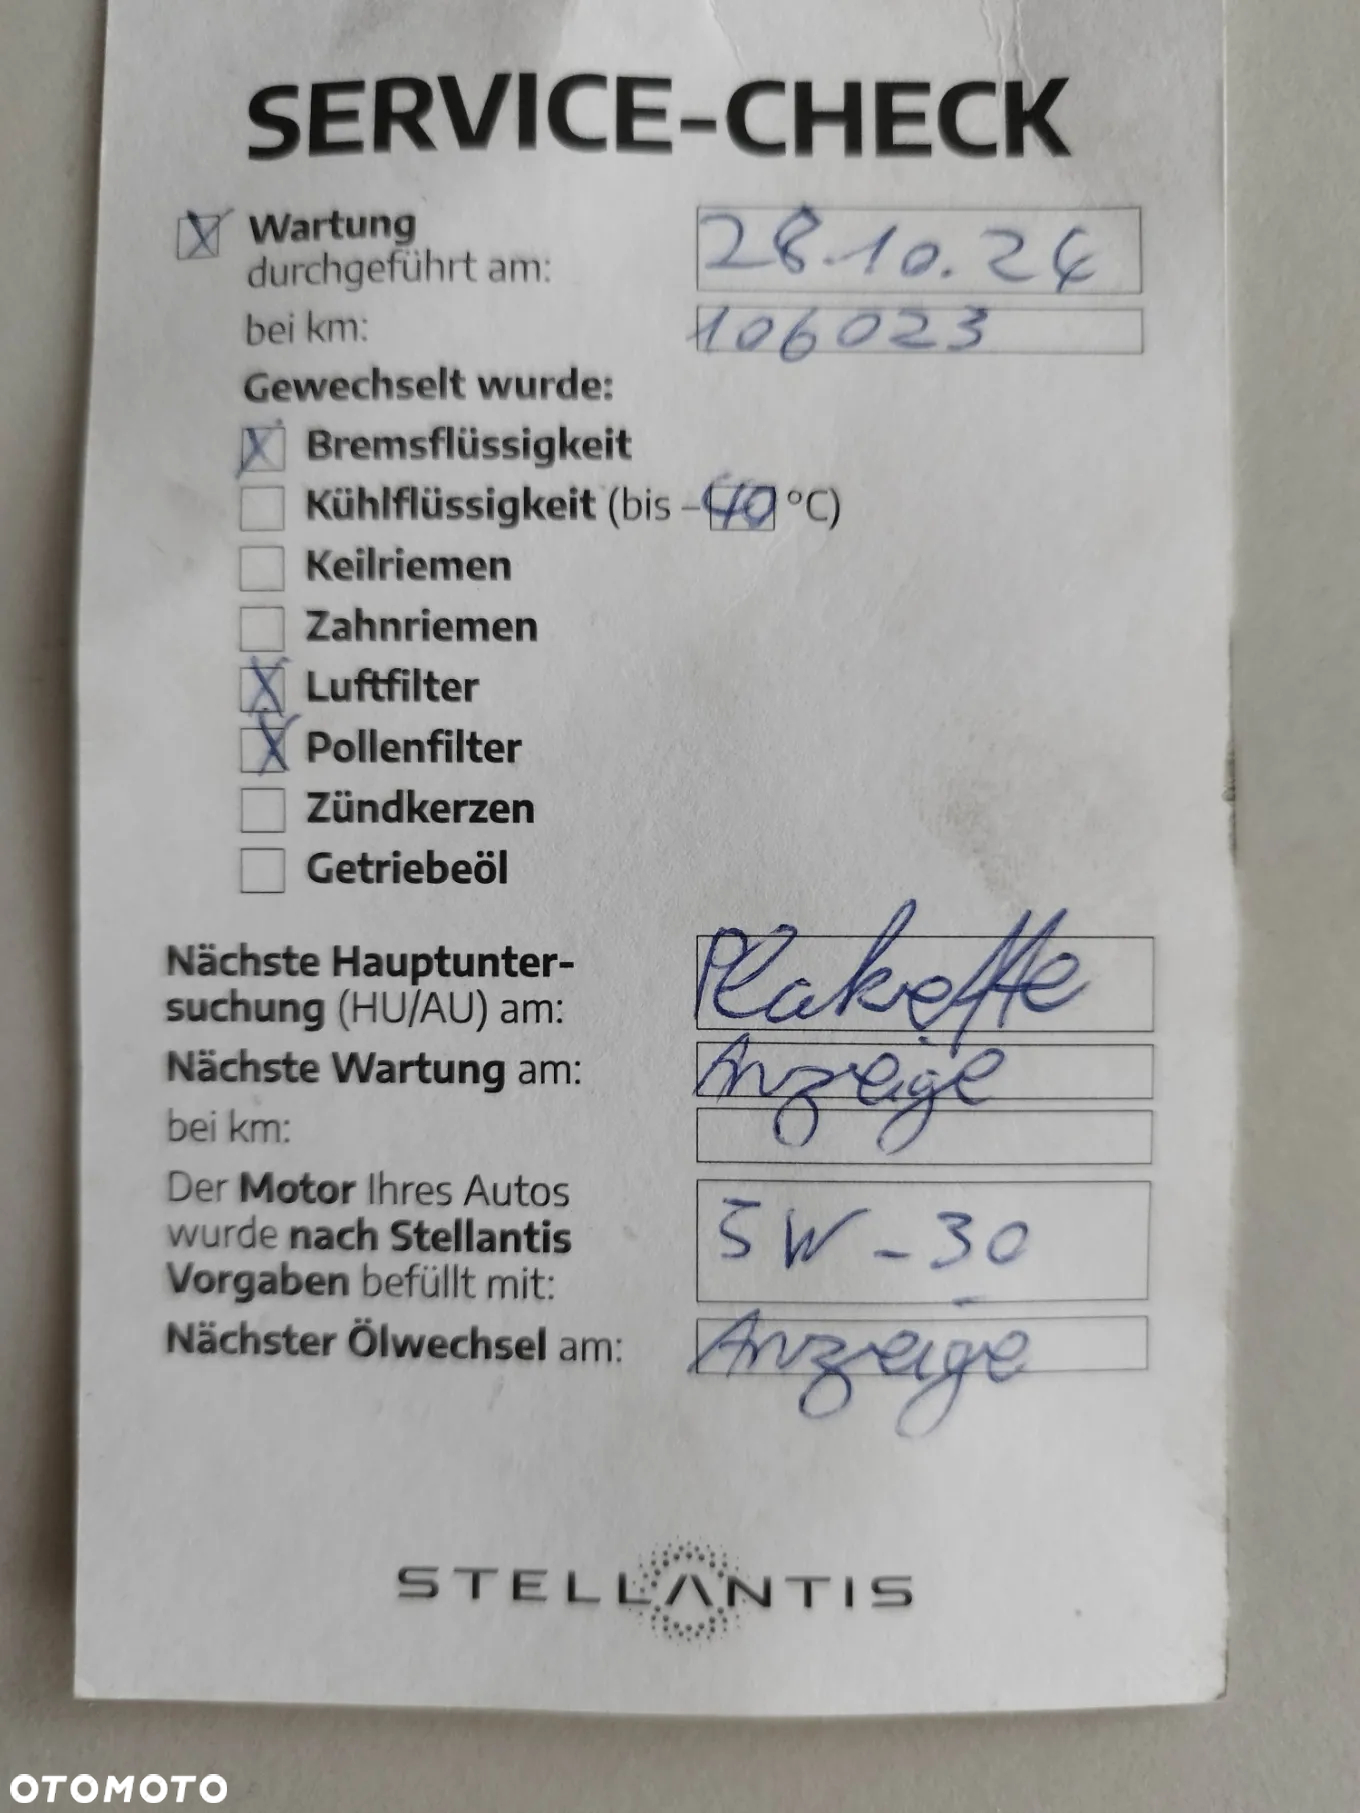 SERVICE-CHECK
X Wartung 28.10.24
durchgeführt am:
bei km: 106023
Gewechselt wurde:
X Bremsflüssigkeit
Kühlflüssigkeit (bis -40 °C)
Keilriemen
Zahnriemen
X Luftfilter
X Pollenfilter
Zündkerzen
Getriebeöl
Nächste Hauptunter-
suchung (HU/AU) am: Plakette
Nächste Wartung am: Anzeige
bei km:
Der Motor Ihres Autos
wurde nach Stellantis 5W-30
Vorgaben befüllt mit:
Nächster Ölwechsel am: Anzeige
STELLANTIS
OTOMOTO